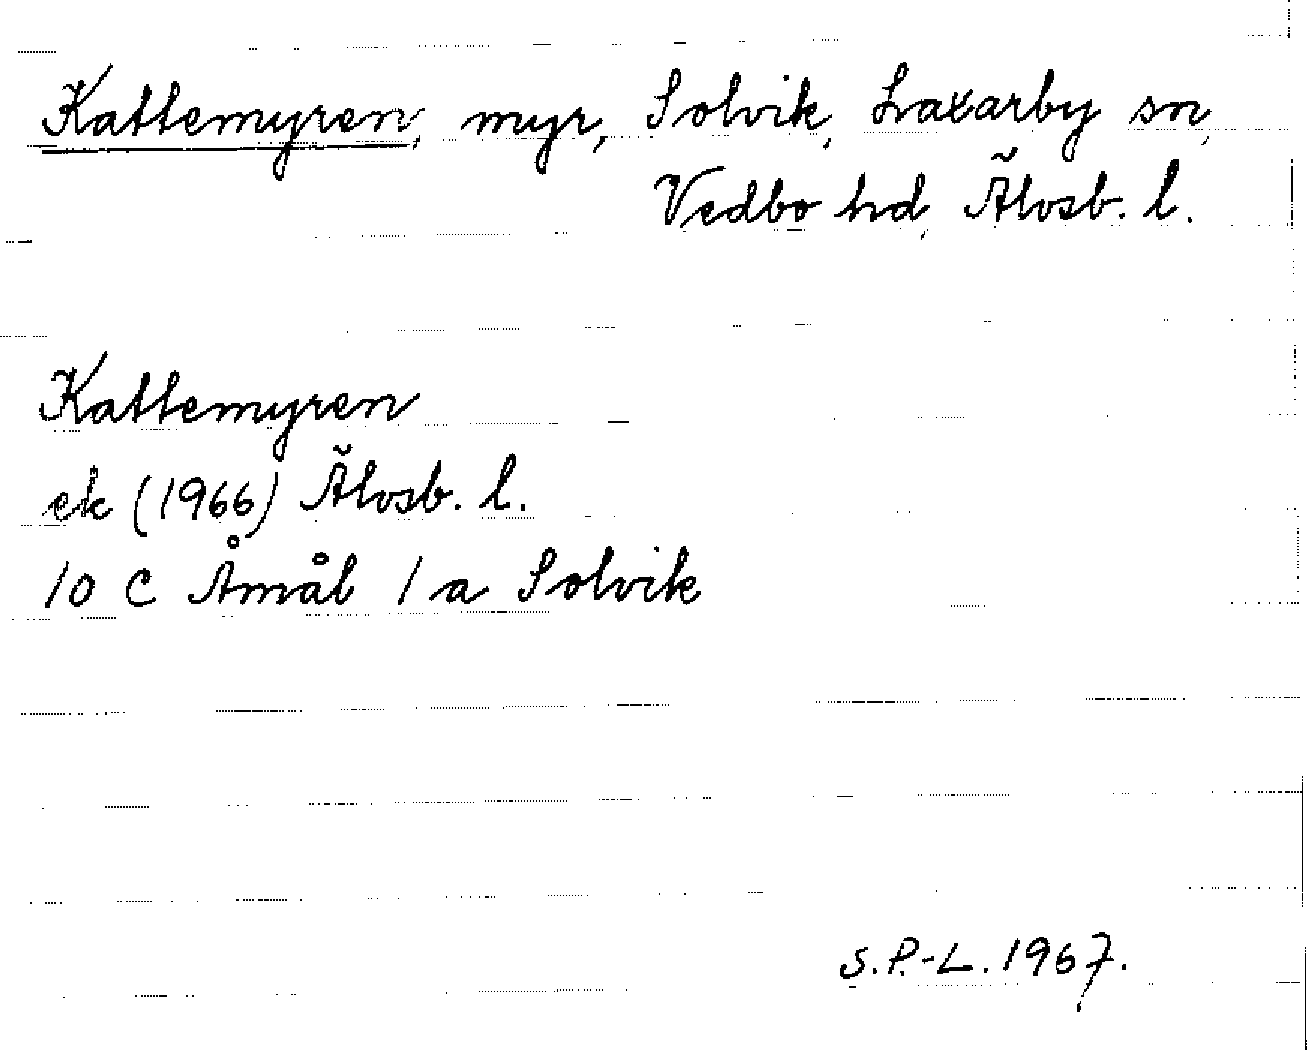 Kattemyren, myr, Solvik, Laxarby sn,
Vedbo hd, Älvsb. l.
Kattemyren
ek (1966) Älvsb. l.
10 C Åmål 1 a Solvik
S.P.-L. 1967.